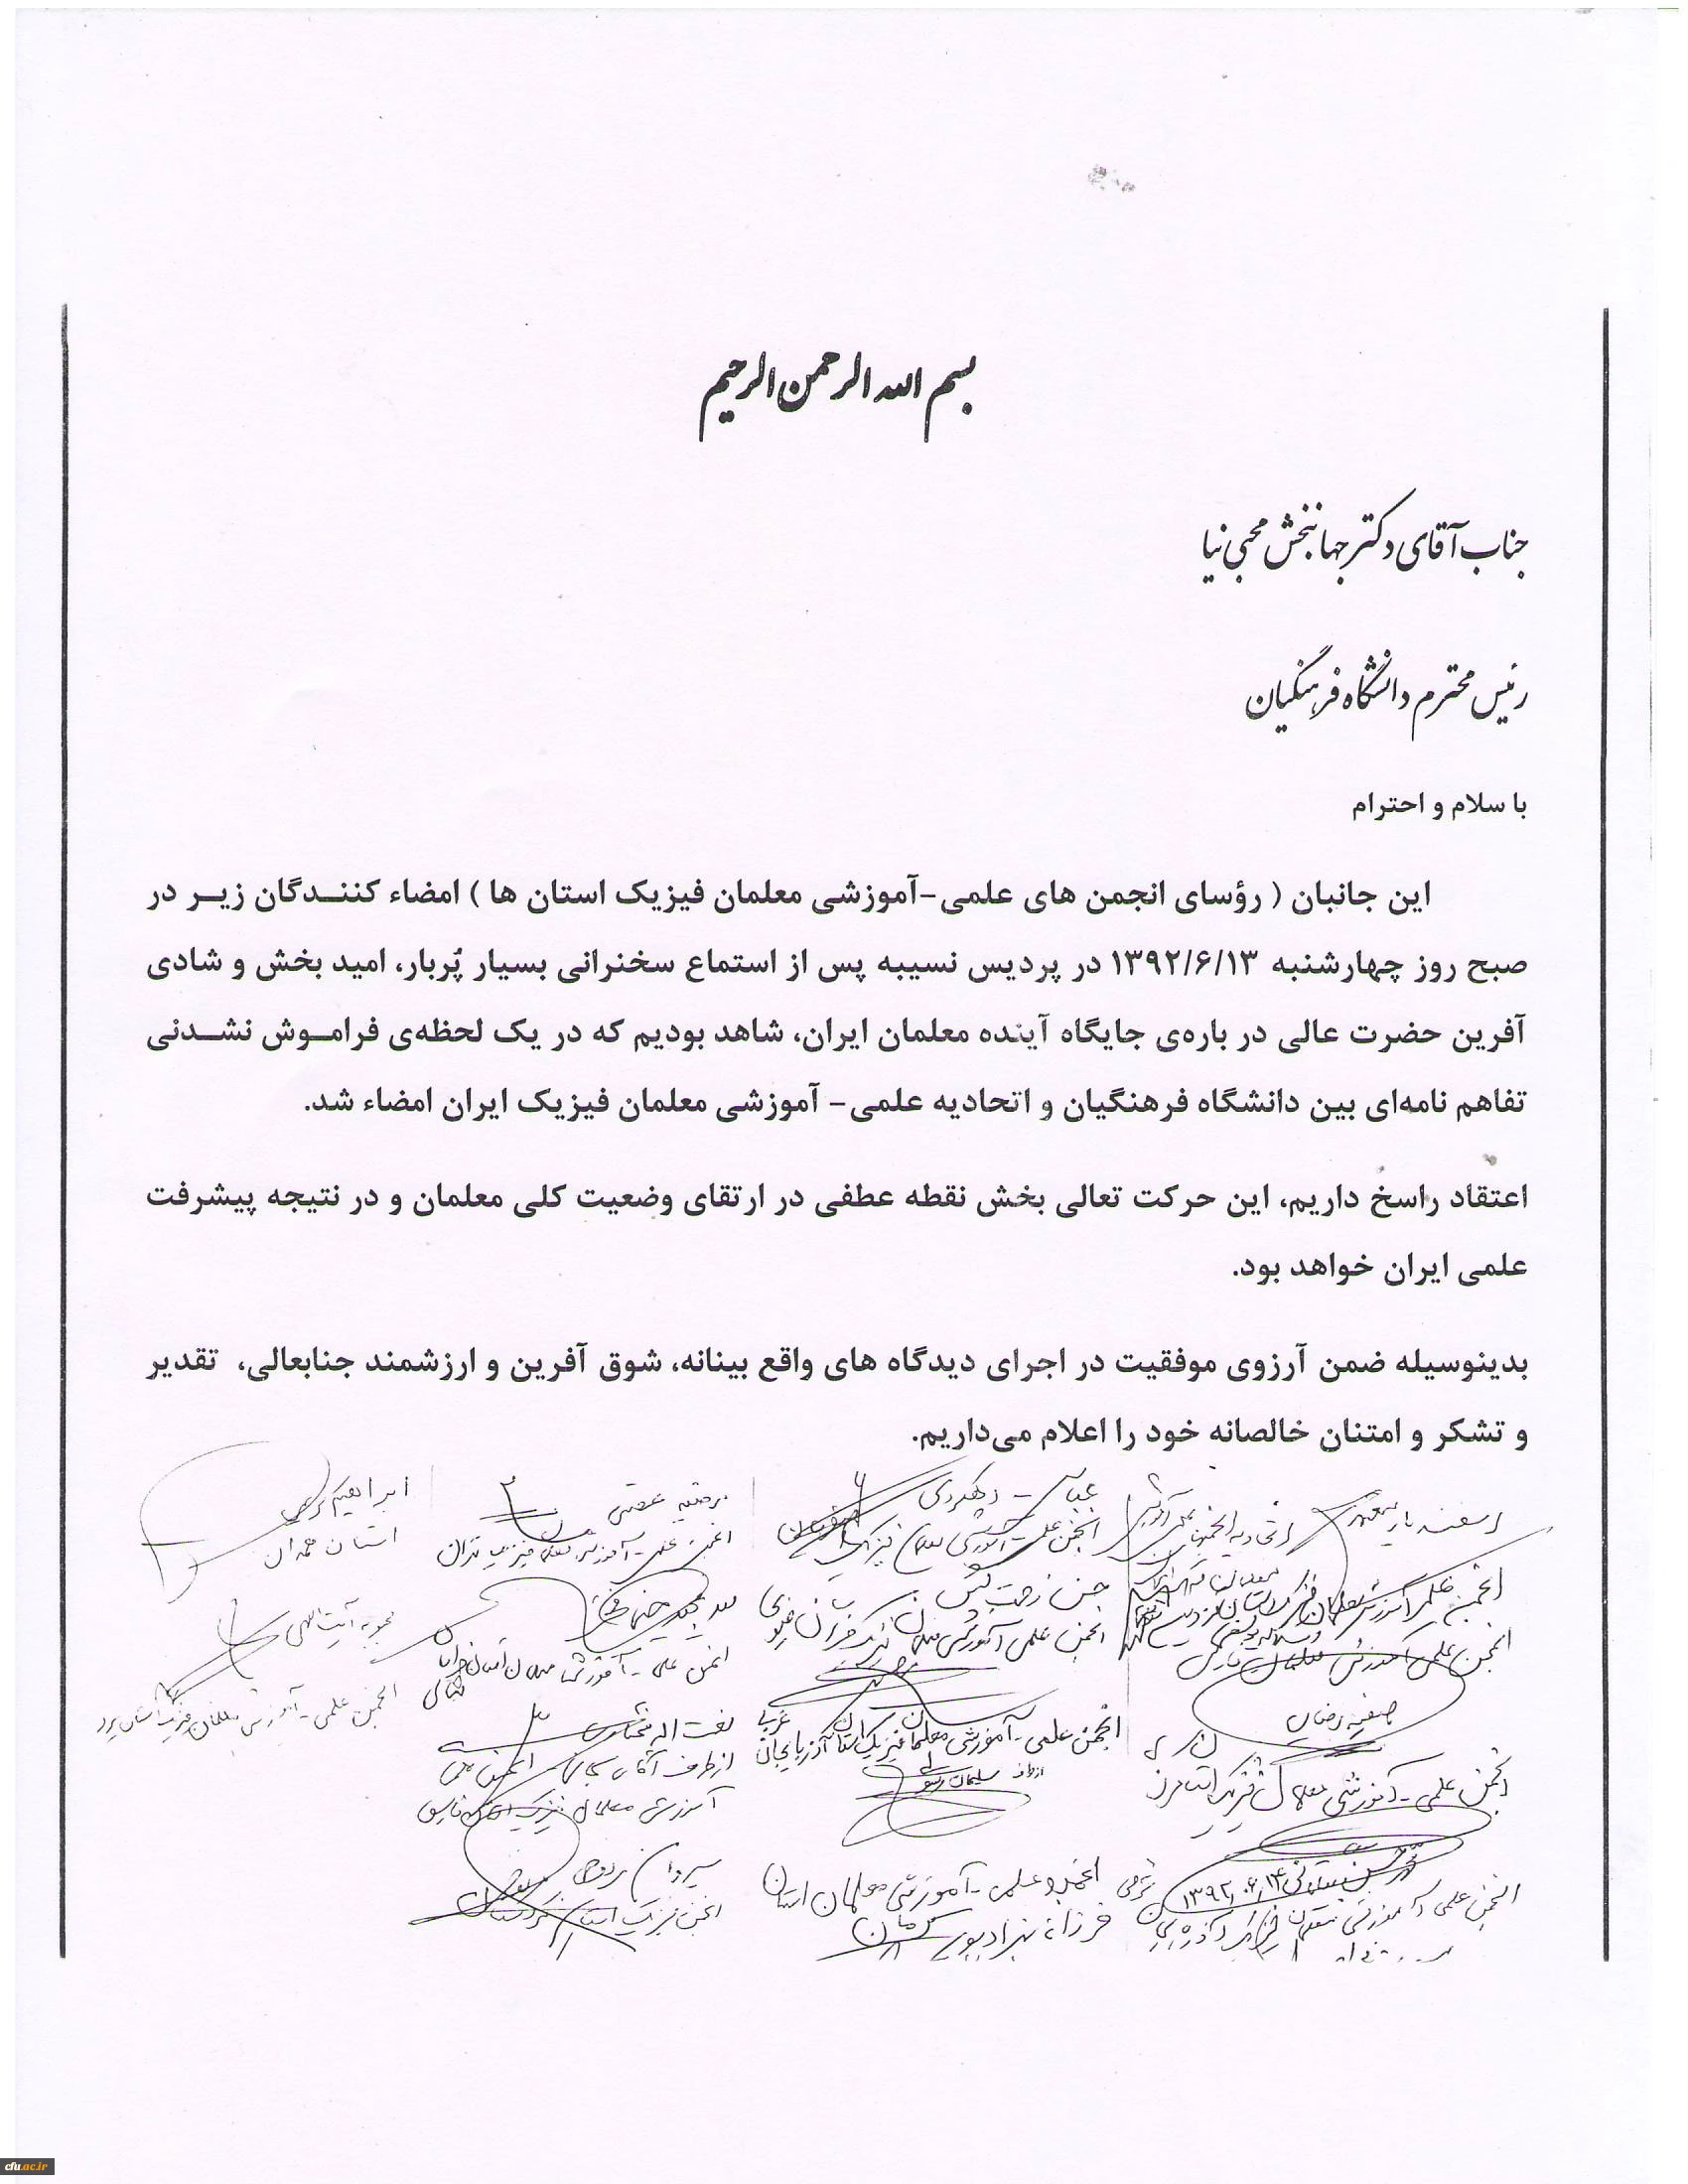 بسم الله الرحمن الرحیم
جناب آقای دکتر جهانبخش محبی نیا
رئیس محترم دانشگاه فرهنگیان
با سلام و احترام
این جانبان ( رؤسای انجمن های علمی-آموزشی معلمان فیزیک استان ها ) امضاء کنندگان زیر در
صبح روز چهارشنبه ۱۳۹۲/۶/۱۳ در پردیس نسیبه پس از استماع سخنرانی بسیار پُربار، امید بخش و شادی
آفرین حضرت عالی در باره‌ی جایگاه آینده معلمان ایران، شاهد بودیم که در یک لحظه‌ی فراموش نشدنی
تفاهم نامه‌ای بین دانشگاه فرهنگیان و اتحادیه علمی- آموزشی معلمان فیزیک ایران امضاء شد.
اعتقاد راسخ داریم، این حرکت تعالی بخش نقطه عطفی در ارتقای وضعیت کلی معلمان و در نتیجه پیشرفت
علمی ایران خواهد بود.
بدینوسیله ضمن آرزوی موفقیت در اجرای دیدگاه های واقع بینانه، شوق آفرین و ارزشمند جنابعالی، تقدیر
و تشکر و امتنان خالصانه خود را اعلام می‌داریم.
اسفندیار
انجمن علمی آموزشی معلمان
صفیه رضایی
انجمن علمی - آموزشی معلمان فیزیک استان
انجمن علمی آموزشی معلمان فیزیک
عباس
انجمن علمی - آموزشی معلمان فیزیک اصفهان
حسن زحمت کش
انجمن علمی آموزشی معلمان فیزیک خراسان رضوی
انجمن علمی - آموزشی معلمان فیزیک استان آذربایجان غربی
از طرف سلیمان رسولی
انجمن علمی - آموزشی معلمان استان
کرمان
مرضیه
انجمن علمی - آموزشی معلمان فیزیک تهران
انجمن علمی - آموزشی معلمان استان خراسان شمالی
از طرف آقای انجمن علمی
آموزشی معلمان فیزیک استان فارس
سیروان
انجمن فیزیک استان کردستان
ابراهیم
استان همدان
محبوبه آیت اللهی
انجمن علمی - آموزشی معلمان فیزیک استان یزد
cfu.ac.ir